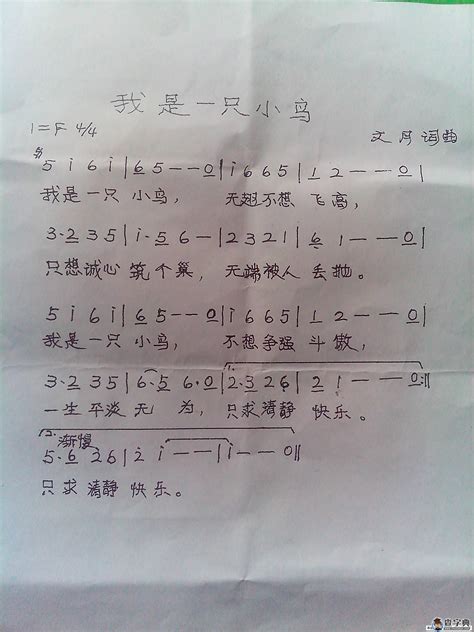 我是一只小鸟
1=F 4/4
文月 词曲
5 i 6 i | 6 5 — — 0 | i 6 6 5 | 1 2 — — 0 |
我是一只 小鸟， 无翅不想 飞高，
3·2 3 5 | i·5 6 — | 2 3 2 1 | 6 1 — — 0 |
只想诚心 筑个巢， 无端被人 丢抛。
5 i 6 i | 6 5 — — 0 | i 6 6 5 | 1 2 — — 0 |
我是一只 小鸟， 不想争强 斗傲，
1.
3·2 3 5 | 6·5 6·0 | 2·3 2 6 | 2 1 — — 0 :||
一生平淡 无 为， 只求清静 快乐。
2.渐慢
5·6 2 6 | 2 i — — | i — — 0 ||
只求清静 快乐。
查字典